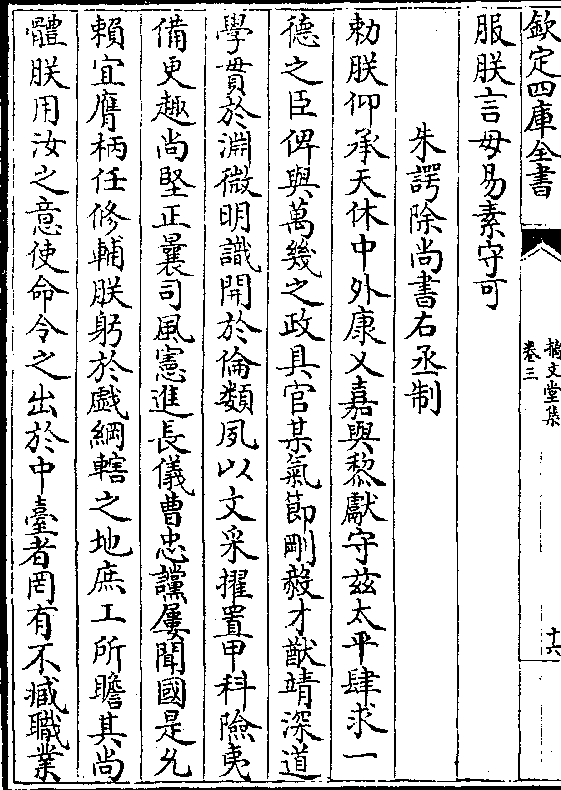 欽定四庫全書
摛文堂集
卷三
十六
服朕言毋易素守可
朱諤除尚書右丞制
勅朕仰承天休中外康乂嘉與黎獻守兹太平肆求一
德之臣俾與萬幾之政具官某氣節剛毅才猷靖深道
學貫於淵微明識開於倫類夙以文采擢置甲科險夷
備更趣尚堅正曩司風憲進長儀曹忠讜屢聞國是允
賴宜膺柄任修輔朕躬於戲綱轄之地庶工所瞻其尚
體朕用汝之意使命令之出於中臺者罔有不臧職業